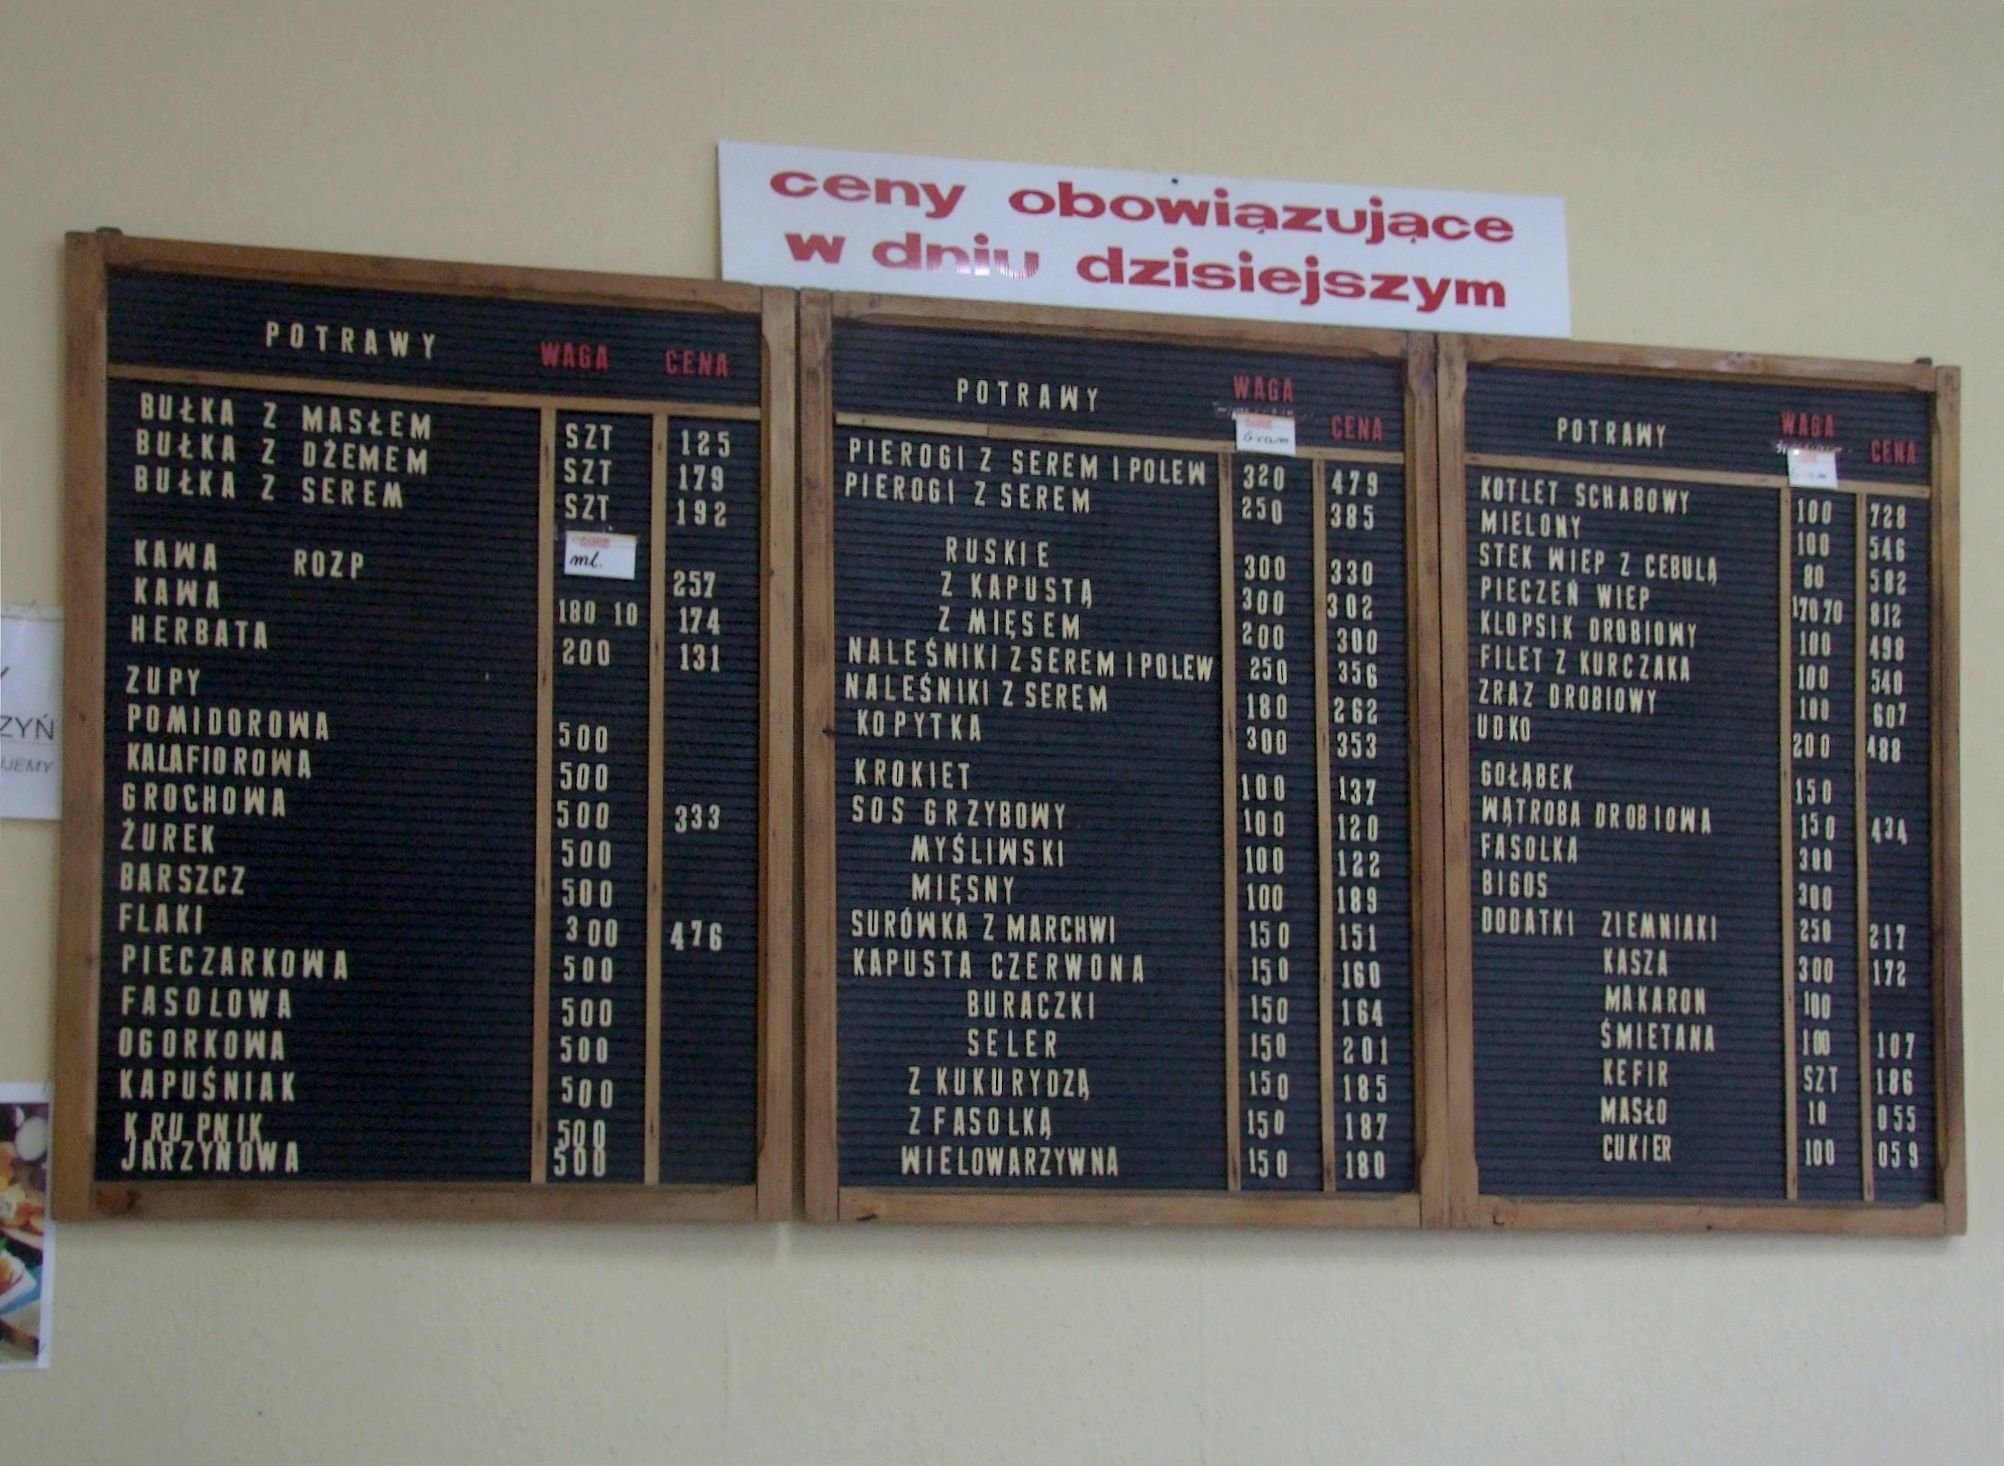 ceny obowiązujące
w dniu dzisiejszym
POTRAWY WAGA CENA
BUŁKA Z MASŁEM SZT 125
BUŁKA Z DŻEMEM SZT 179
BUŁKA Z SEREM SZT 192
ml.
KAWA ROZP 257
KAWA 180 10 174
HERBATA 200 131
ZUPY
POMIDOROWA 500
KALAFIOROWA 500
GROCHOWA 500 333
ŻUREK 500
BARSZCZ 500
FLAKI 300 476
PIECZARKOWA 500
FASOLOWA 500
OGORKOWA 500
KAPUŚNIAK 500
KRUPNIK 500
JARZYNOWA 500
POTRAWY WAGA CENA
Gram
PIEROGI Z SEREM I POLEW 320 479
PIEROGI Z SEREM 250 385
RUSKIE 300 330
Z KAPUSTĄ 300 302
Z MIĘSEM 200 300
NALEŚNIKI Z SEREM I POLEW 250 356
NALEŚNIKI Z SEREM 180 262
KOPYTKA 300 353
KROKIET 100 137
SOS GRZYBOWY 100 120
MYŚLIWSKI 100 122
MIĘSNY 100 189
SURÓWKA Z MARCHWI 150 151
KAPUSTA CZERWONA 150 160
BURACZKI 150 164
SELER 150 201
Z KUKURYDZĄ 150 185
Z FASOLKĄ 150 187
WIELOWARZYWNA 150 180
POTRAWY WAGA CENA
KOTLET SCHABOWY 100 728
MIELONY 100 546
STEK WIEP Z CEBULĄ 80 582
PIECZEŃ WIEP 170 70 812
KLOPSIK DROBIOWY 100 498
FILET Z KURCZAKA 100 540
ZRAZ DROBIOWY 100 607
UDKO 200 488
GOŁĄBEK 150
WĄTROBA DROBIOWA 150 434
FASOLKA 300
BIGOS 300
DODATKI ZIEMNIAKI 250 217
KASZA 300 172
MAKARON 100
ŚMIETANA 100 107
KEFIR SZT 186
MASŁO 10 055
CUKIER 100 059
ZYŃ
UJEMY